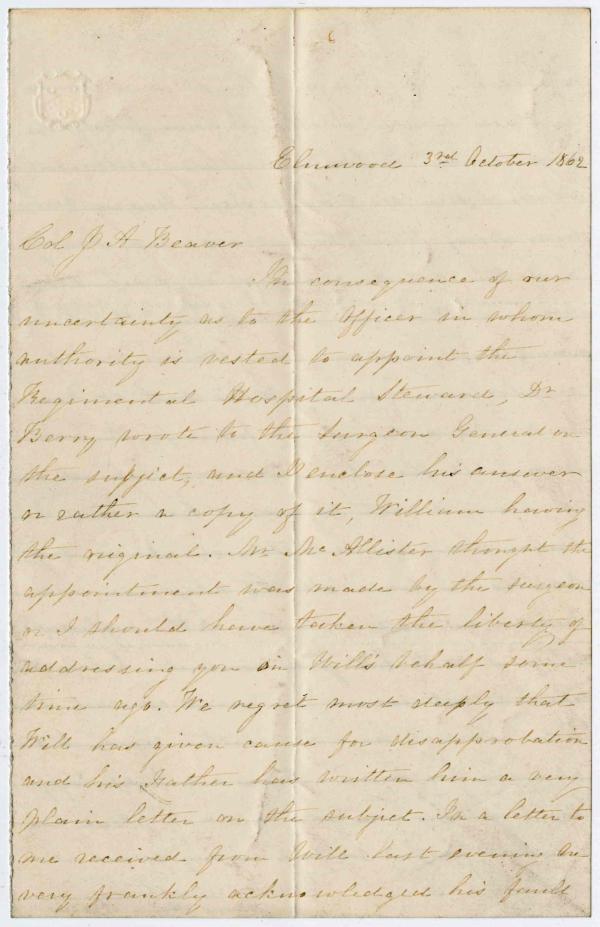 Elmwood 3rd October 1862
Col J A Beaver
In consequence of our
uncertainty as to the Officer in whom
authority is vested to appoint the
Regimental Hospital Steward, Dr
Berry wrote to the Surgeon General on
the subject, and I enclose his answer
or rather a copy of it, William having
the original. Mr McAllister thought the
appointment was made by the surgeon
or I should have taken the liberty of
addressing you in Will's behalf some
time ago. We regret most deeply that
Will has given cause for disapprobation
and his Father has written him a very
plain letter on the subject. In a letter to
me received from Will last evening he
very frankly acknowledged his fault